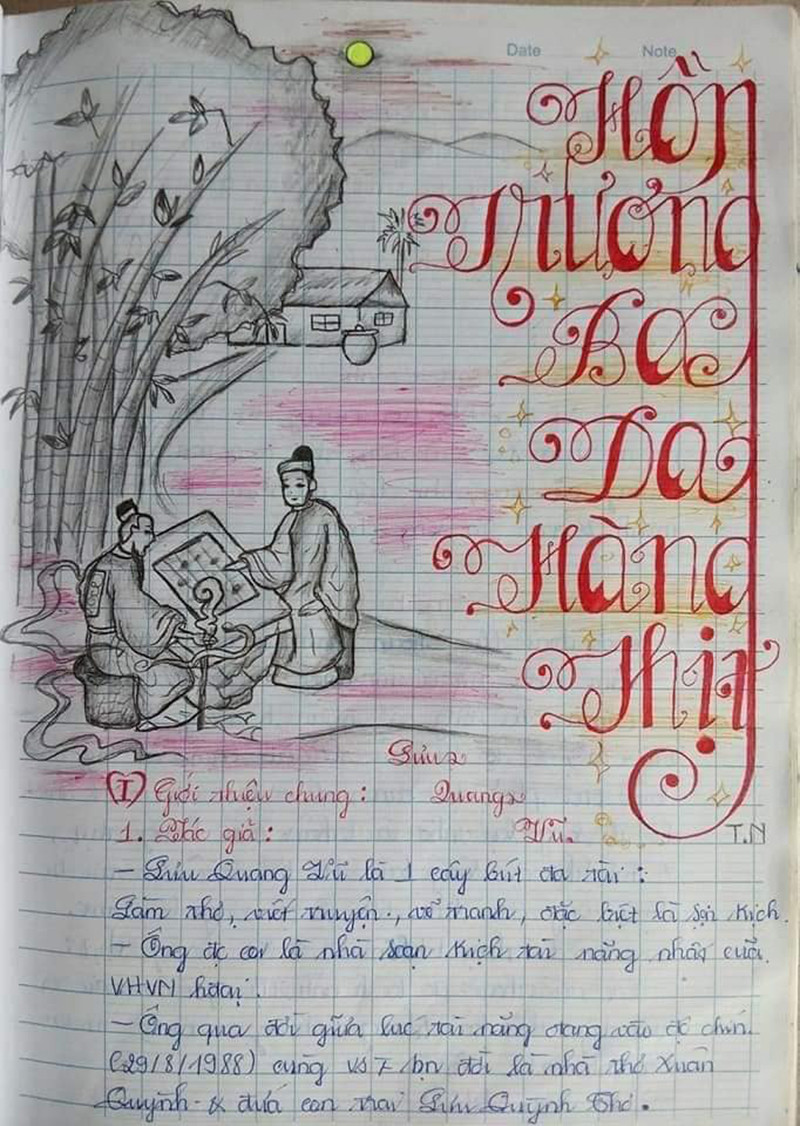 Date
Note
Hồn
Trương
Ba
Da
Hàng
Thịt
T.N
Lưu
Quang
Vũ.
I Giới thiệu chung:
1. Tác giả:
- Lưu Quang Vũ là 1 cây bút đa tài:
Làm thơ, viết truyện, vẽ tranh, đặc biệt là sạn kịch.
- Ông đc coi là nhà soạn kịch tài năng nhất của
VHVN hđại.
- Ông qua đời giữa lúc tài năng đang vào độ chín
(29/8/1988) cùng vs bạn đời là nhà thơ Xuân
Quỳnh & đứa con trai Lưu Quỳnh Thơ.